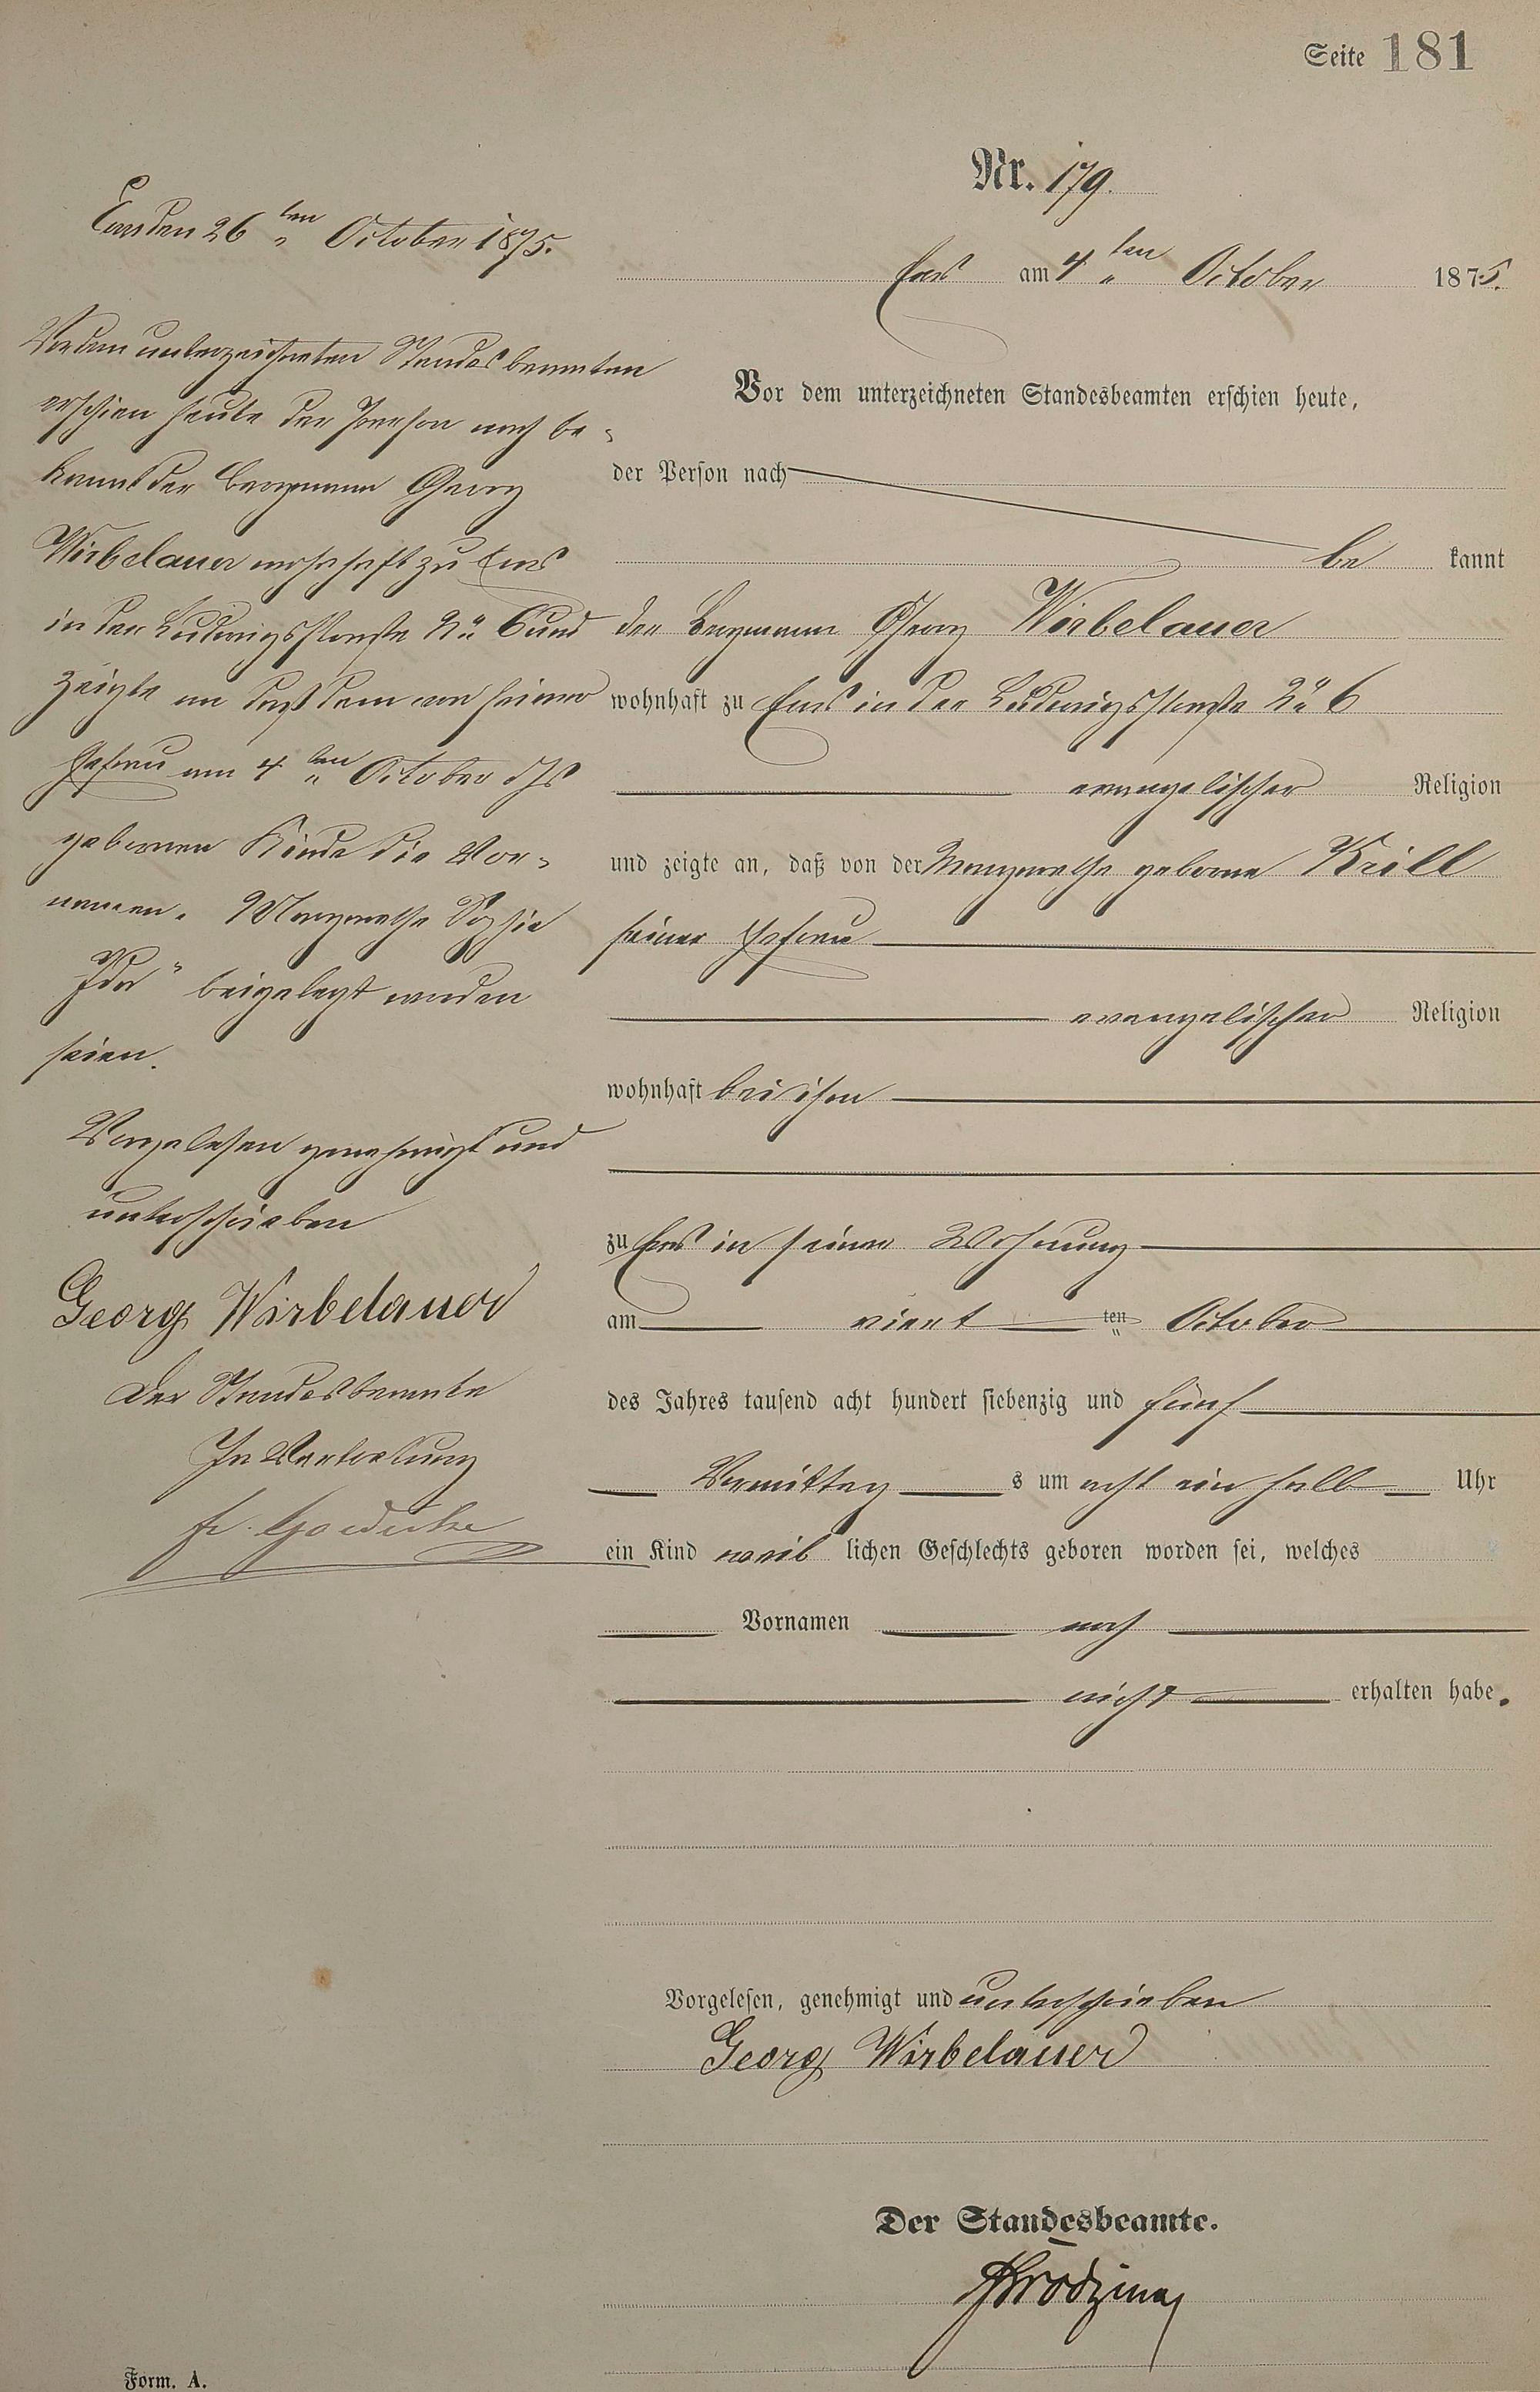 Seite 181
Nr. 179.
Ems am 4ten October 1875.
Vor dem unterzeichneten Standesbeamten erschien heute,
der Person nach
be kannt
der Bergmann Georg Wirbelauer
wohnhaft zu Ems in der Ludwigsstraße No 6
evangelischer Religion
und zeigte an, daß von der Margarethe geborne Krill
seiner Ehefrau
evangelischer Religion
wohnhaft bei ihm
zu Ems in seiner Wohnung
am viert ten October
des Jahres tausend acht hundert siebenzig und fünf
Vormittag s um acht ein halb Uhr
ein Kind weib lichen Geschlechts geboren worden sei, welches
Vornamen noch
nicht erhalten habe.
Vorgelesen, genehmigt und unterschrieben
Georg Wirbelauer
Der Standesbeamte.
Ems den 26ten October 1875.
Vor dem unterzeichneten Standesbeamten
erschien heute der Person nach be-
kannt der Bergmann Georg
Wirbelauer wohnhaft zu Ems
in der Ludwigsstraße No 6 und
zeigte an daß dem von seiner
Ehefrau am 4ten October djs
gebornen Kinde die Vor-
namen „Margarethe Sophie
Ida" beigelegt worden
seien.
Vorgelesen genehmigt und
unterschrieben
Georg Wirbelauer
Der Standesbeamte
In Vertretung
Form. A.